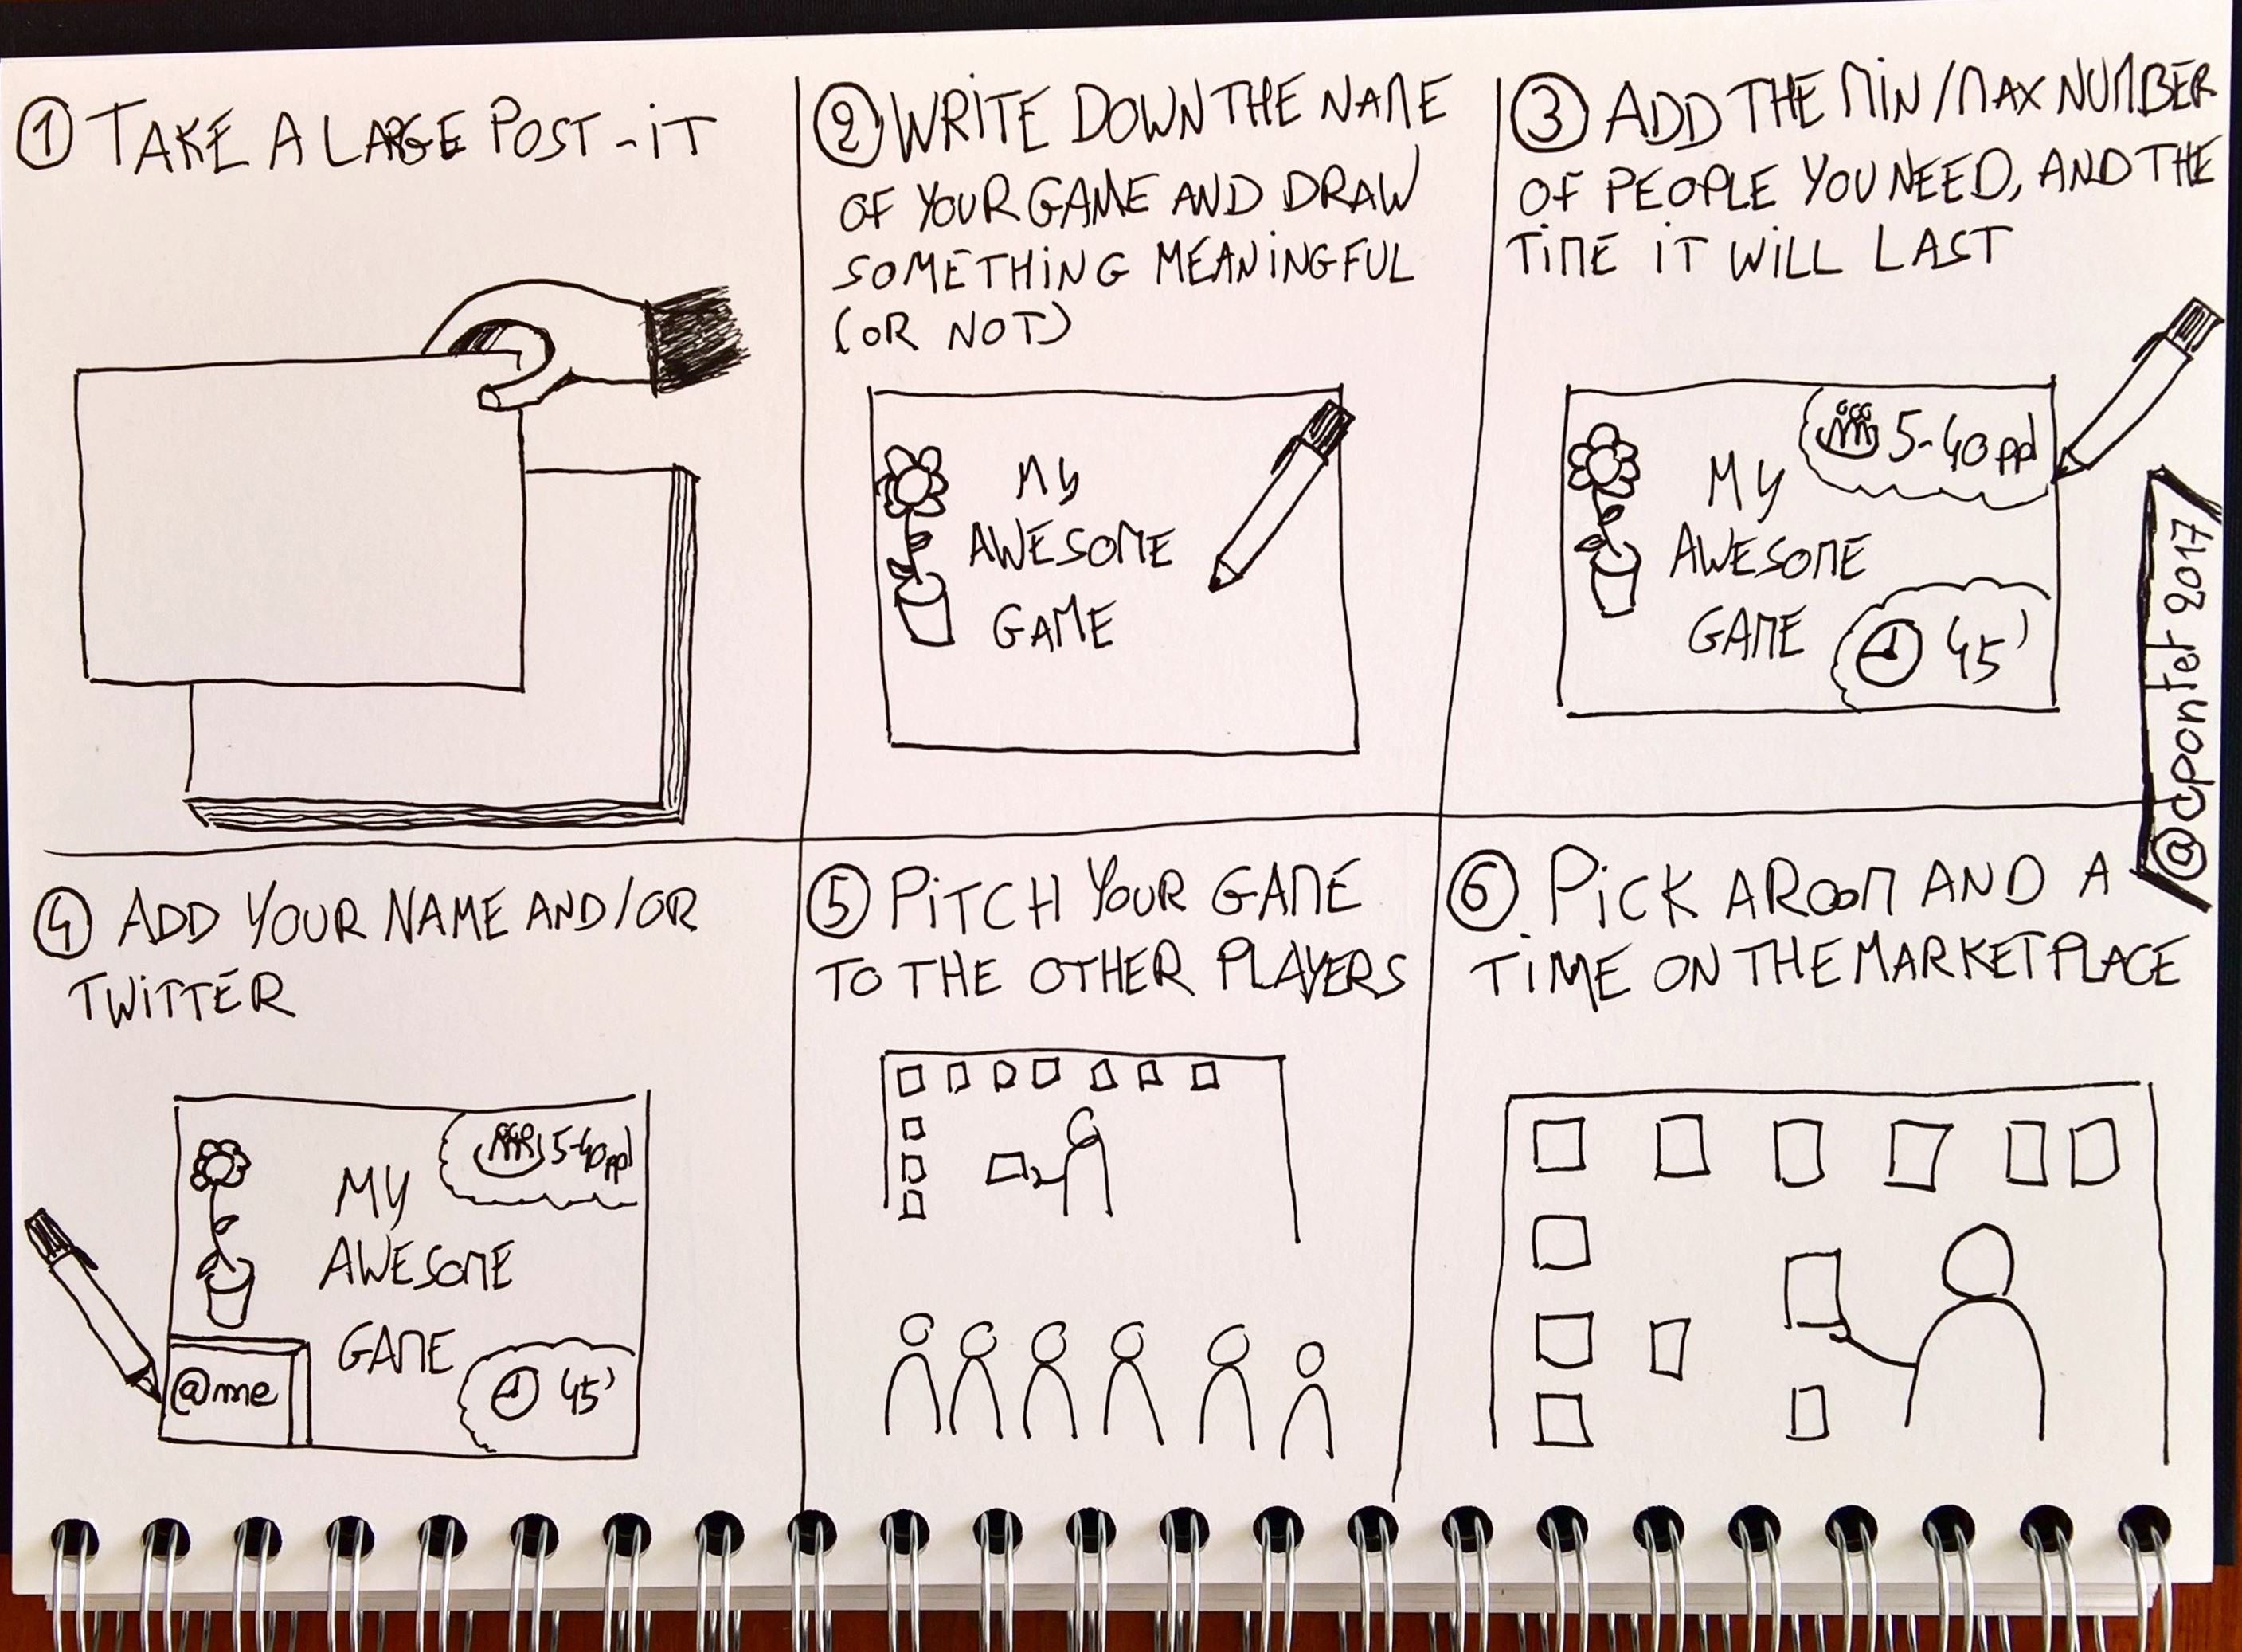 ① TAKE A LARGE POST-iT
② WRITE DOWN THE NAME
OF YOUR GAME AND DRAW
SOMETHING MEANINGFUL
(OR NOT)
MY
AWESOME
GAME
③ ADD THE MIN/MAX NUMBER
OF PEOPLE YOU NEED, AND THE
TIME IT WILL LAST
5-40 ppl
MY
AWESOME
GAME
45'
@cpontet 2017
④ ADD YOUR NAME AND/OR
TWITTER
5-40 ppl
MY
AWESOME
GAME
@me
45'
⑤ PITCH YOUR GAME
TO THE OTHER PLAYERS
⑥ PICK A ROOM AND A
TIME ON THE MARKETPLACE